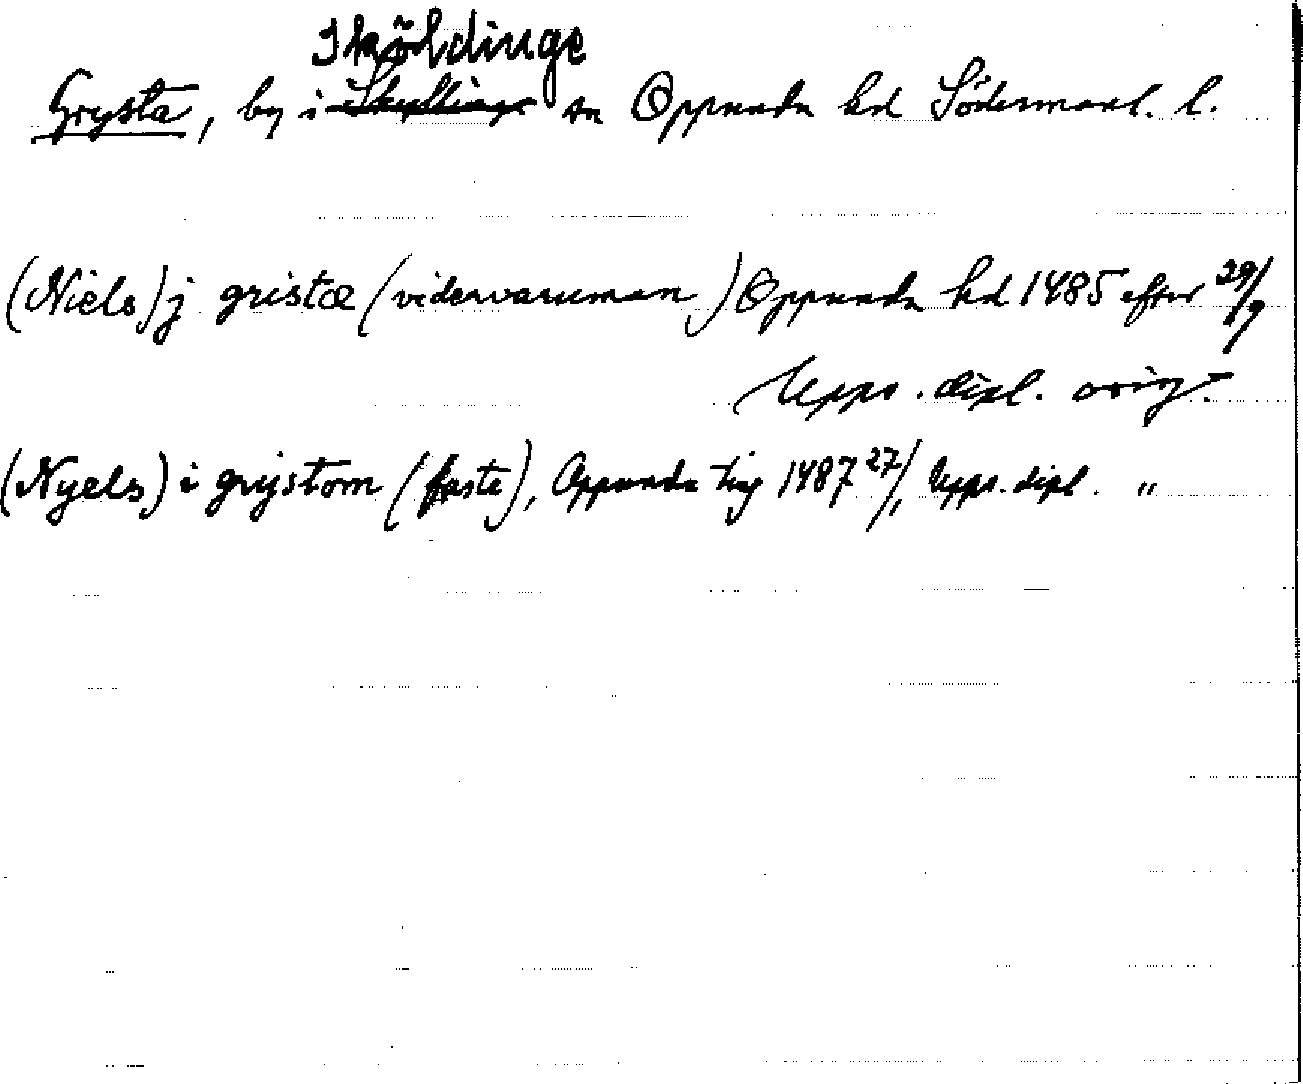 Sköldinge
Grysta, by i Skyllinge sn Oppunda hd Södermanl. l.
(Niels) j gristæ (vidervaruman) Oppunda hd 1485 efter 29/9
Upps. dipl. orig.
(Nyels) i grijstom (faste), Oppunda ting 1487 27/11 Upps. dipl. "